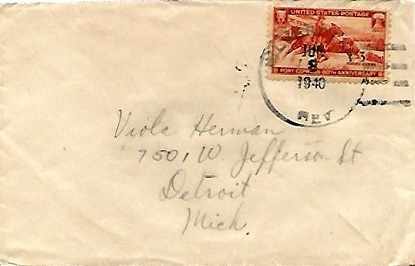 UNITED STATES POSTAGE
PONY EXPRESS 80TH ANNIVERSARY
JUN
8
1940
NEV
Viola Herman
7501 W. Jefferson St
Detroit
Mich.